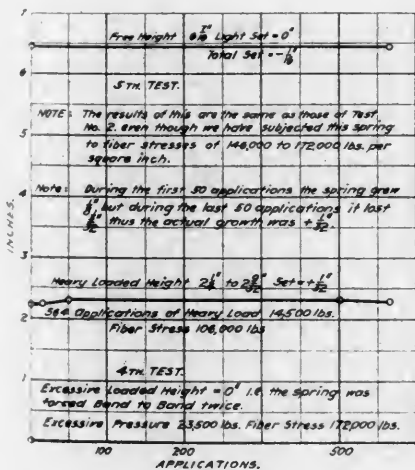 Free Height 6 7/16" Light Set = 0"
Total Set = - 1/16"
5 TH. TEST.
NOTE: The results of this are the same as those of Test
No. 2. even though we have subjected this spring
to fiber stresses of 146,000 to 172,000 lbs. per
square inch.
Note: During the first 50 applications the spring grew
but during the last 50 applications it lost
thus the actual growth was + 1/32"
Heavy Loaded Height 2 1/4" to 2 9/32" Set = + 1/32"
564 Applications of Heavy Load 14,500 lbs.
Fiber Stress 106,000 lbs
4 TH. TEST.
Excessive Loaded Height = 0" i.e. the spring was
forced Band to Band twice.
Excessive Pressure 23,500 lbs. Fiber Stress 172,000 lbs.
7
6
5
4
3
2
1
INCHES.
100 200 500
APPLICATIONS.